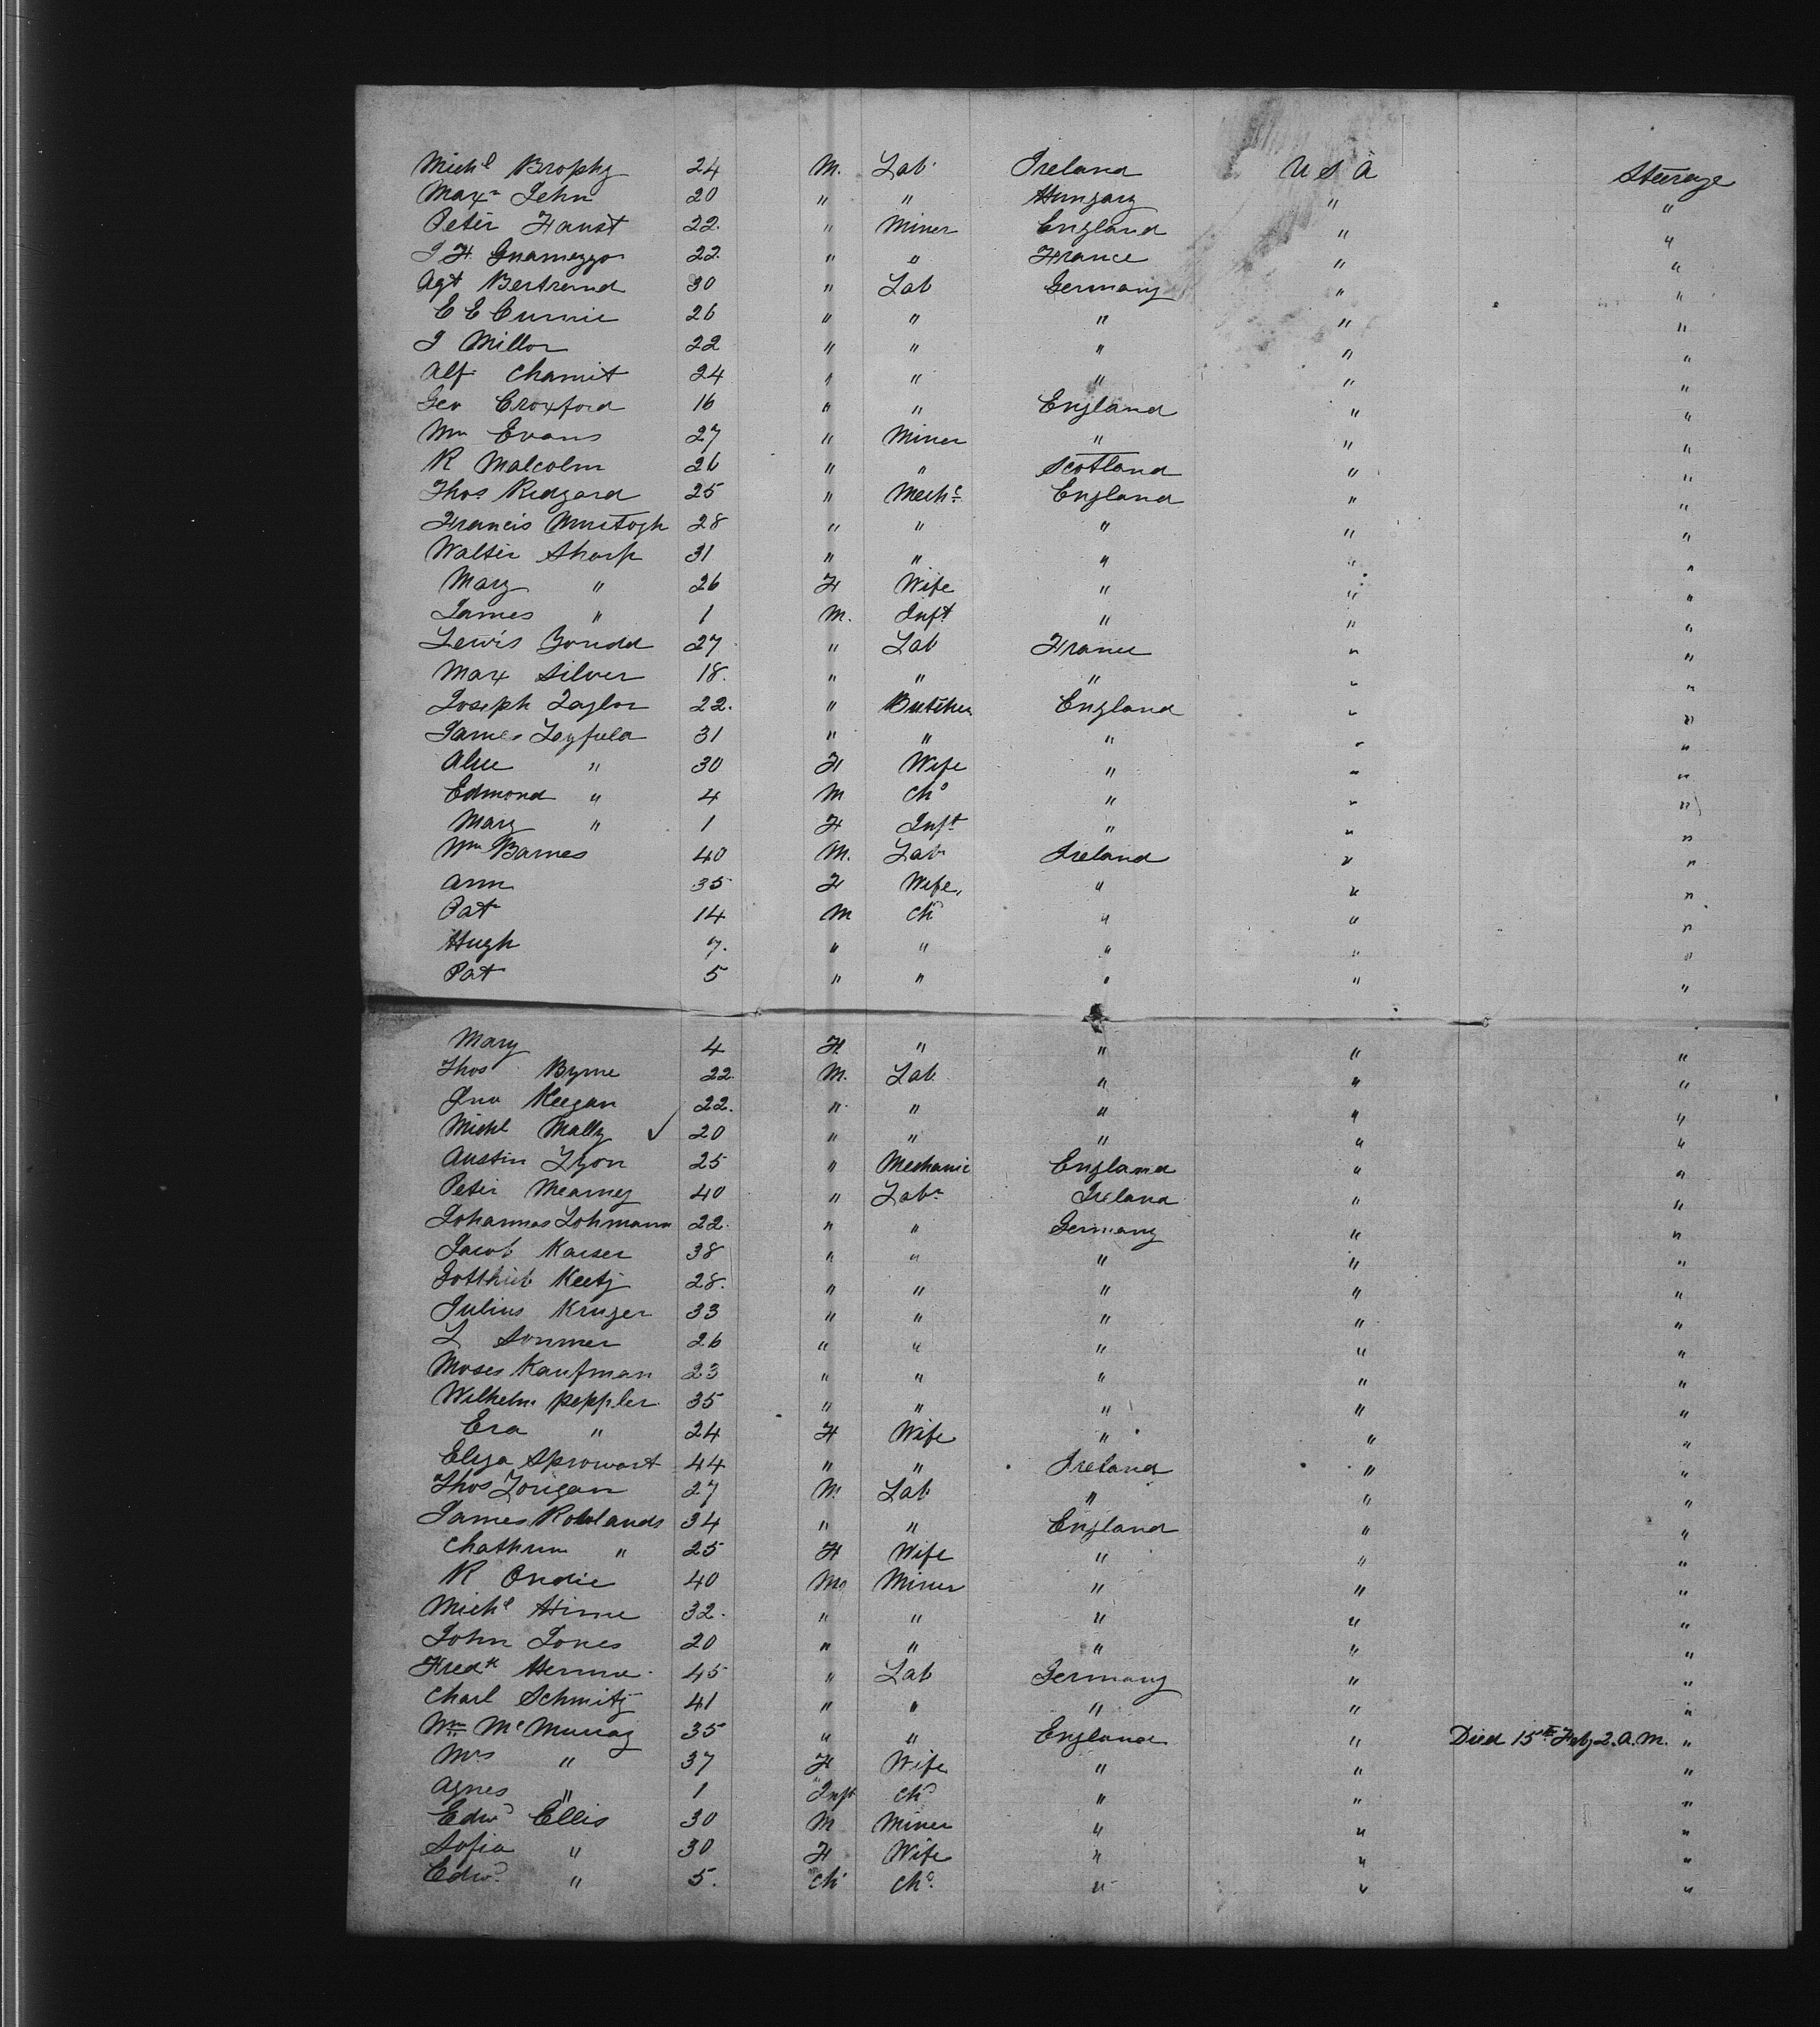 Mich^l Brophy 24 M. Lab Ireland U S A Steerage
Max^n Lehn 20 " " Hungary " "
Peter Faust 22. " Miner England " "
J F 22. " " France " "
Agt Bertrand 30 " Lab Germany " "
E E Currie 26 " " " " "
J Millor 22 " " " " "
Alf Chamit 24 " " " " "
Geo Croxford 16 " " England " "
Wm Evans 27 " Miner " " "
R Malcolm 26 " " Scotland " "
Thos Redgard 25 " Mech^c England " "
Francis Murtogh 28 " " " " "
Walter Sharp 31 " " " " "
Mary " 26 F Wife " " "
James " 1 M. Inft " " "
Lewis 27 " Lab France " "
Max Silver 18. " " " " "
Joseph Taylor 22. " Butcher England " "
James 31 " " " " "
Alice " 30 F Wife " " "
Edmond " 4 M Ch^d " " "
Mary " 1 F Inft " " "
Wm Barnes 40 M. Lab Ireland " "
Ann 35 F Wife " " "
Pat 14 M Ch^d " " "
Hugh 7. " " " " "
Pat 5 " " " " "
Mary 4 F " " " "
Thos Byrne 22. M. Lab " " "
Jno Keegan 22. " " " " "
Michl Mally ✓ 20 " " " " "
Austin Lyon 25 " Mechanic England " "
Peter Mearney 40 " Lab^r Ireland " "
Johannes Lohmann 22. " " Germany " "
Jacob Kaiser 38 " " " " "
Gottlieb Keetz 28. " " " " "
Julius Kruger 33 " " " " "
L Sommer 26 " " " " "
Moses Kaufman 23 " " " " "
Wilhelm Peppler 35 " " " " "
Eva " 24 F Wife " " "
Eliza Sprowart 44 " " Ireland " "
Thos Lorigan 27 M. Lab " " "
James Rowlands 34 " " England " "
Chathrin " 25 F Wife " " "
R Ondie 40 M Miner " " "
Mich^l Hirne 32. " " " " "
John Jones 20 " " " " "
Fred^k 45 " Lab Germany " "
Charl Schmitz 41 " " " " "
Wm McMurray 35 " " England " Died 15th Feby 2. A. M. "
Mrs " 37 F Wife " " "
Agnes " 1 Inft Ch^d " " "
Edw^d Ellis 30 M Miner " " "
Sofia " 30 F Wife " " "
Edw^d " 5. Ch Ch^d " " "